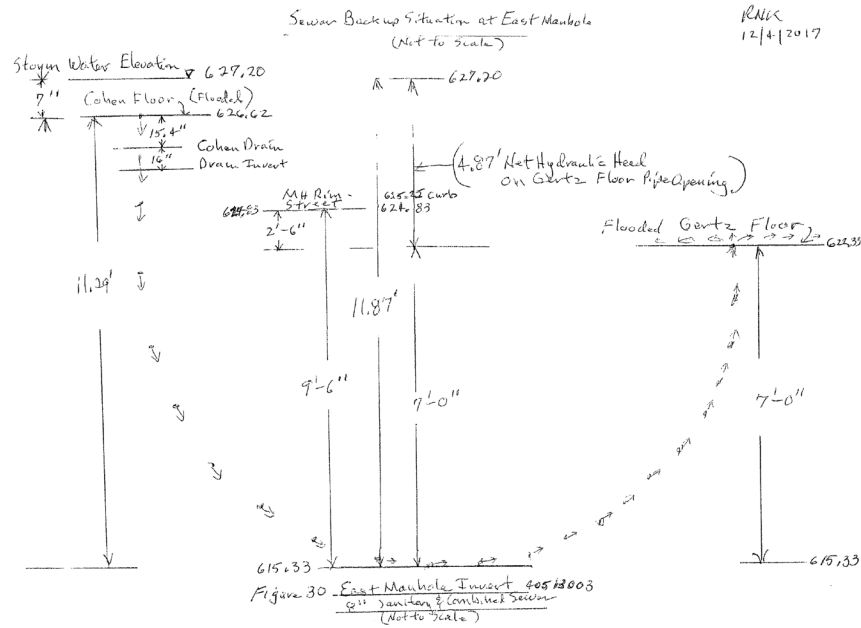 Sewer Backup Situation at East Manhole
(Not to Scale)
RNK
12/4/2017
Storm Water Elevation 627.20
627.20
7"
Cohen Floor (Flooded)
626.62
15.4"
Cohen Drain
16"
Drain Invert
4.87' Net Hydraulic Head
on Gertz Floor Pipe Opening
MH Rim-
Street
Curb
624.83
624.83
2'-6"
Flooded Gertz Floor
622.33
11.29'
11.87'
9'-6"
7'-0"
7'-0"
615.33
615.33
Figure 30 East Manhole Invert
8" Sanitary & Combined Sewer
(Not to Scale)